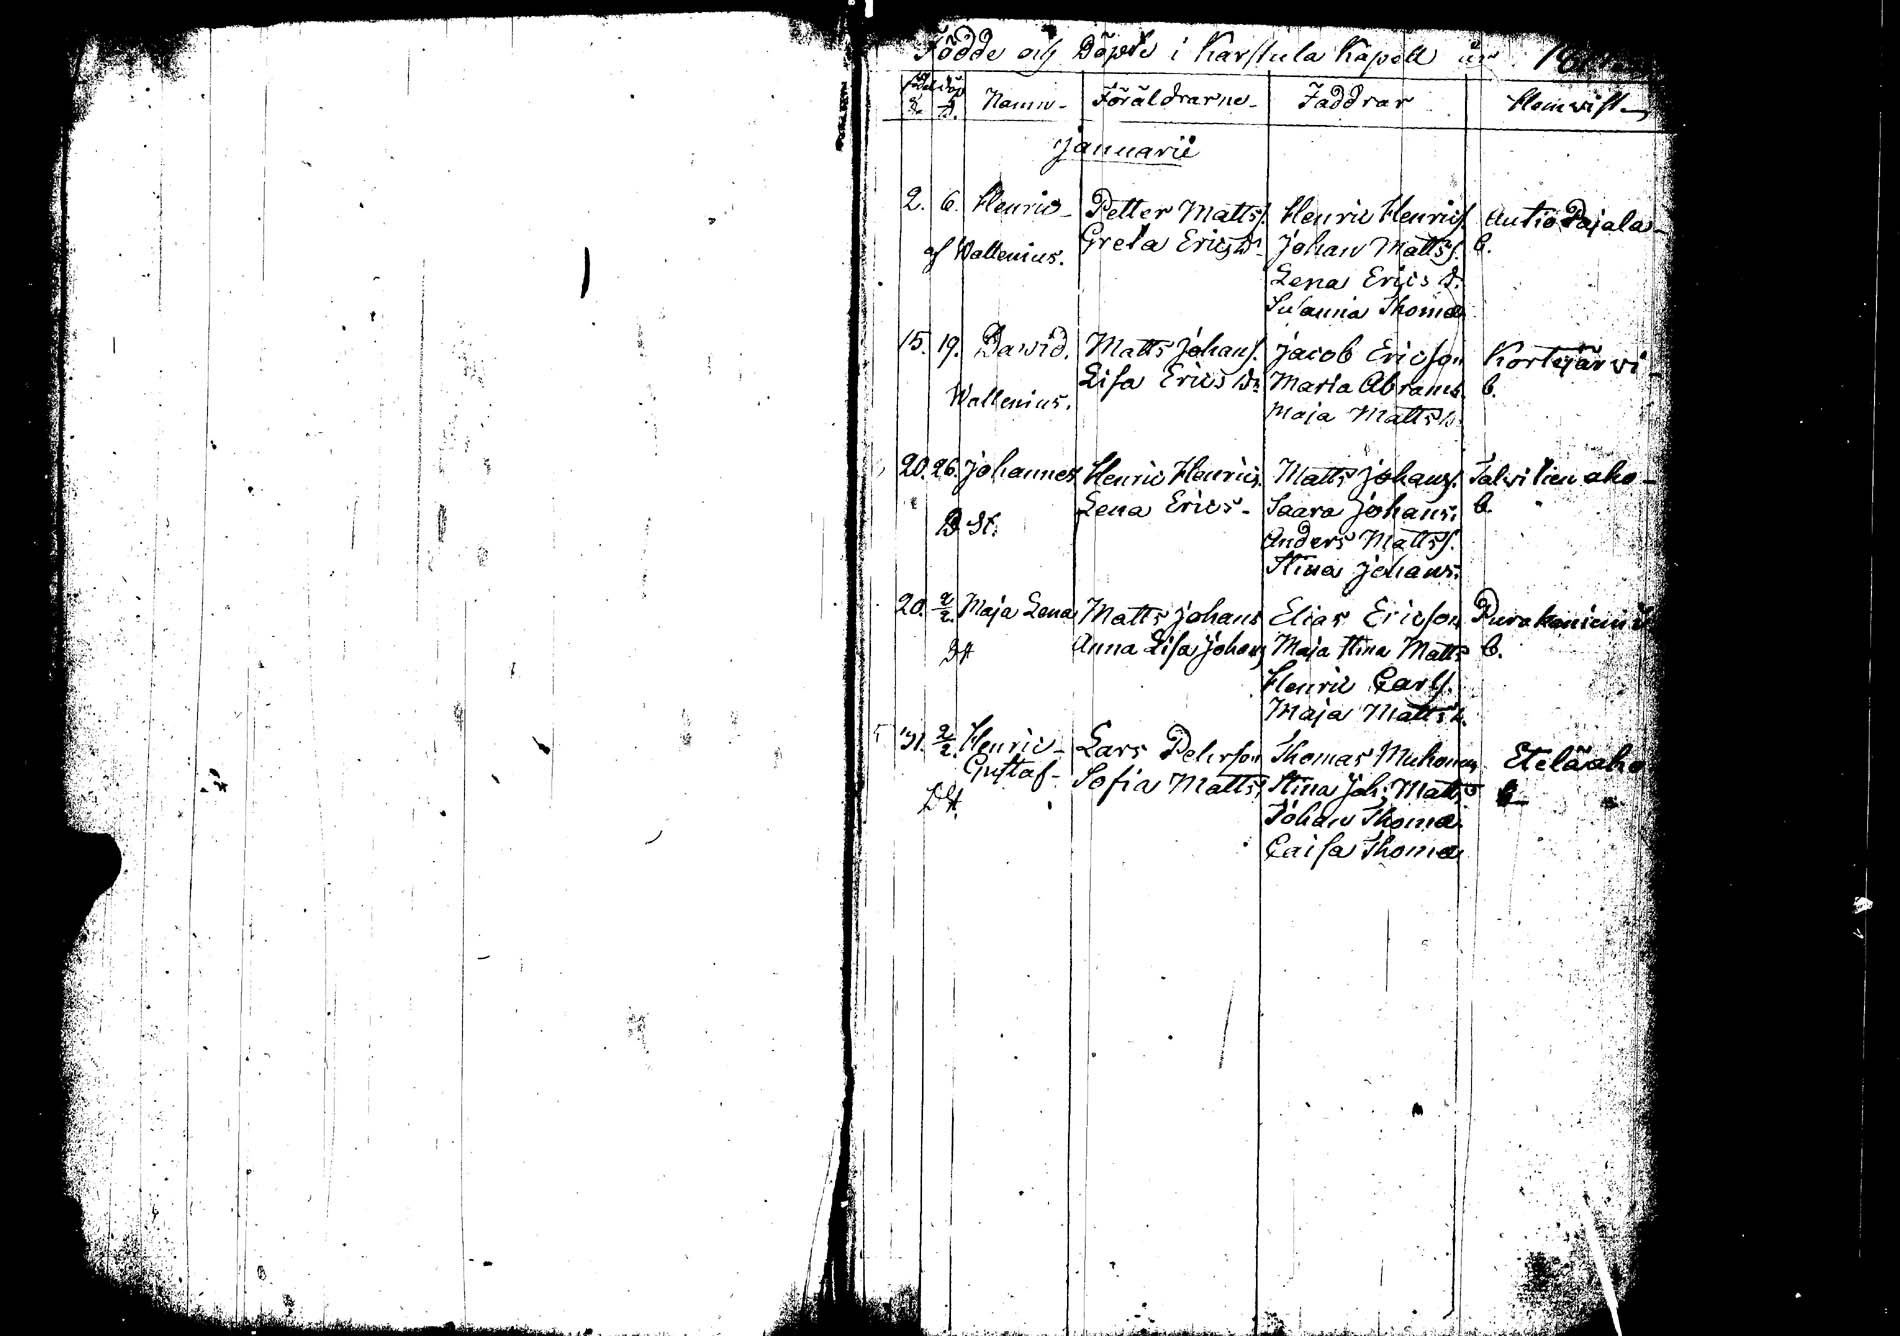 Födde och Döpte i Karstula Kapell år
Namn - Föräldrarne - Faddrar Hemvist -
Januarii
2. 6. Henric - Petter Mattss. Henric Henrics. Autio Pajala -
af Wallenius. Greta Erics Dr Johan Mattss. b.
Lena Erics D.
Susanna Thomæ
15. 19. David. Matts Johans. Jacob Ericson Kortejärvi -
Wallenius. Lisa Erics Dr Maria Abrams. b.
Maja Matts D.
20. 26. Johannes Henric Henrics. Matts Johans. Talvitien aho -
D. St. Lena Erics - Saara Johans. b.
Anders Mattss.
Stina Johans.
20. 2/2. Maja Lena Matts Johans Elias Ericson
D St Anna Lisa Johans Maja Stina Matts b.
Henric Carls.
Maja Matts D.
31. 2/2. Henric - Lars Peterson Thomas Muhonen Eteläaho
Gustaf - Sofia Matts. Stina Joh. Matts b
D St. Johan Thomæ
Caisa Thomæ